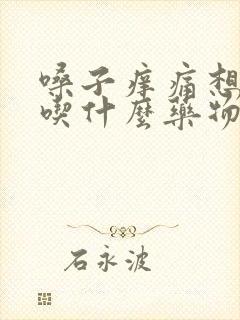 嗓子痒痛想
喫什麼藥物
石永波